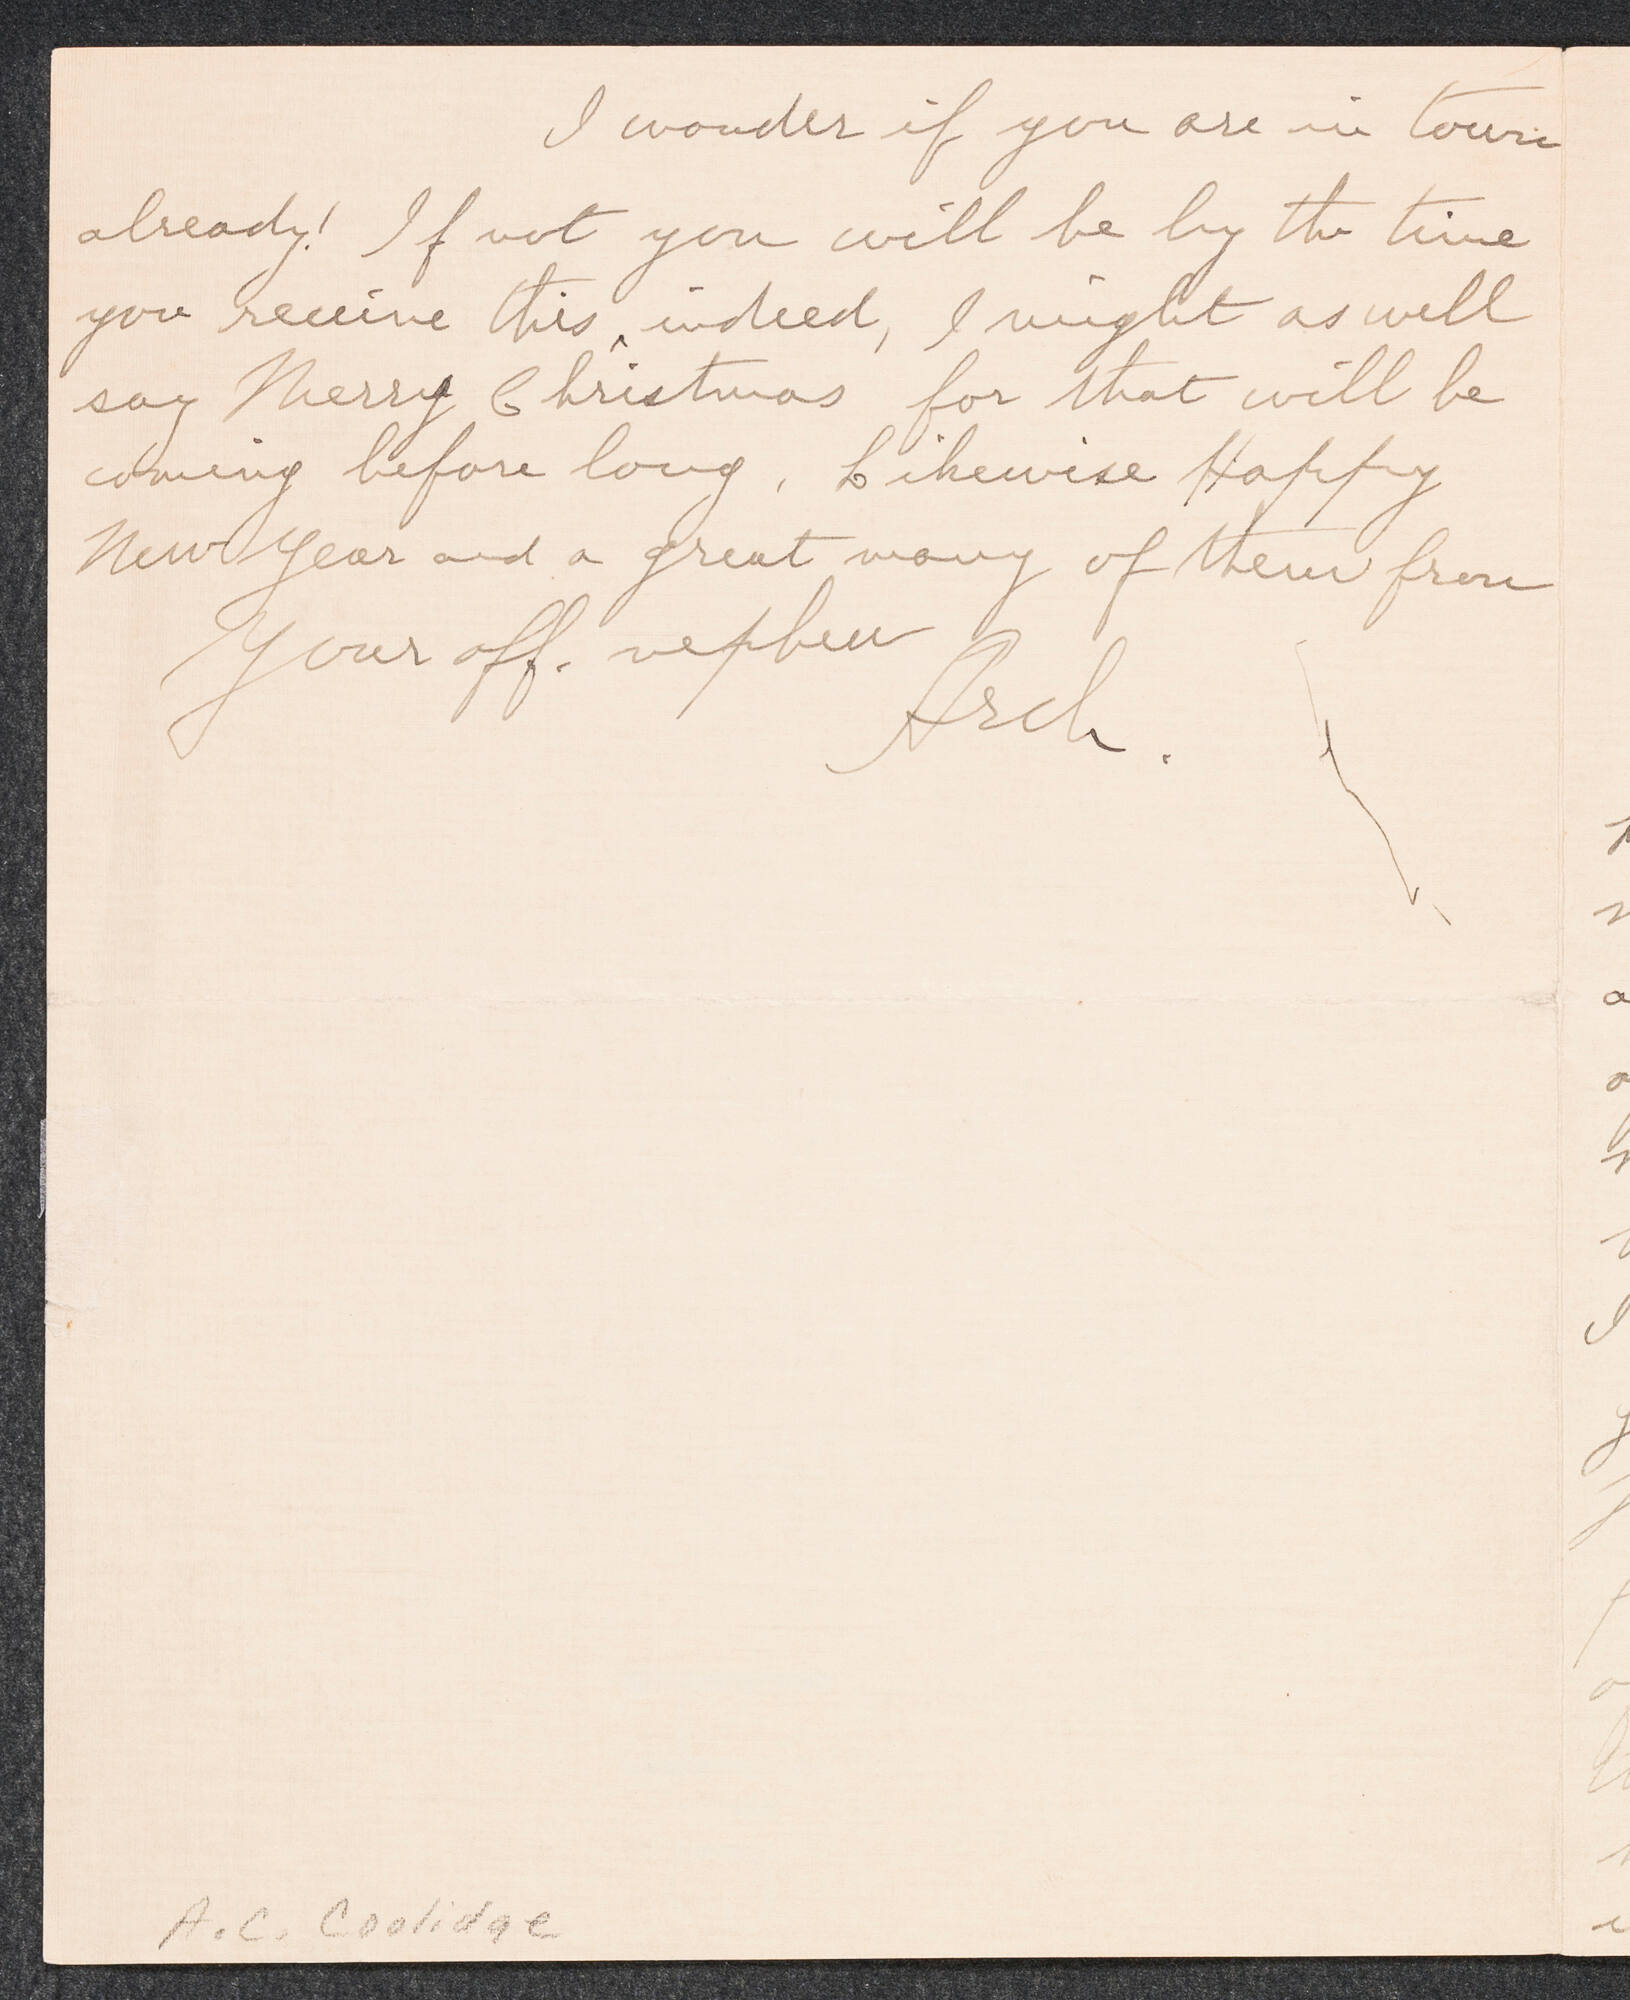 I wonder if you are in town
already! If not you will be by the time
you receive this, indeed, I might as well
say Merry Christmas for that will be
coming before long. Likewise Happy
New Year and a great many of them from
Your aff. nephew
Arch.
A.C. Coolidge